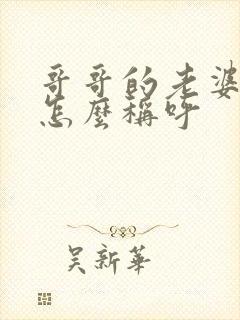 哥哥的老婆
怎麼稱呼
吴新華